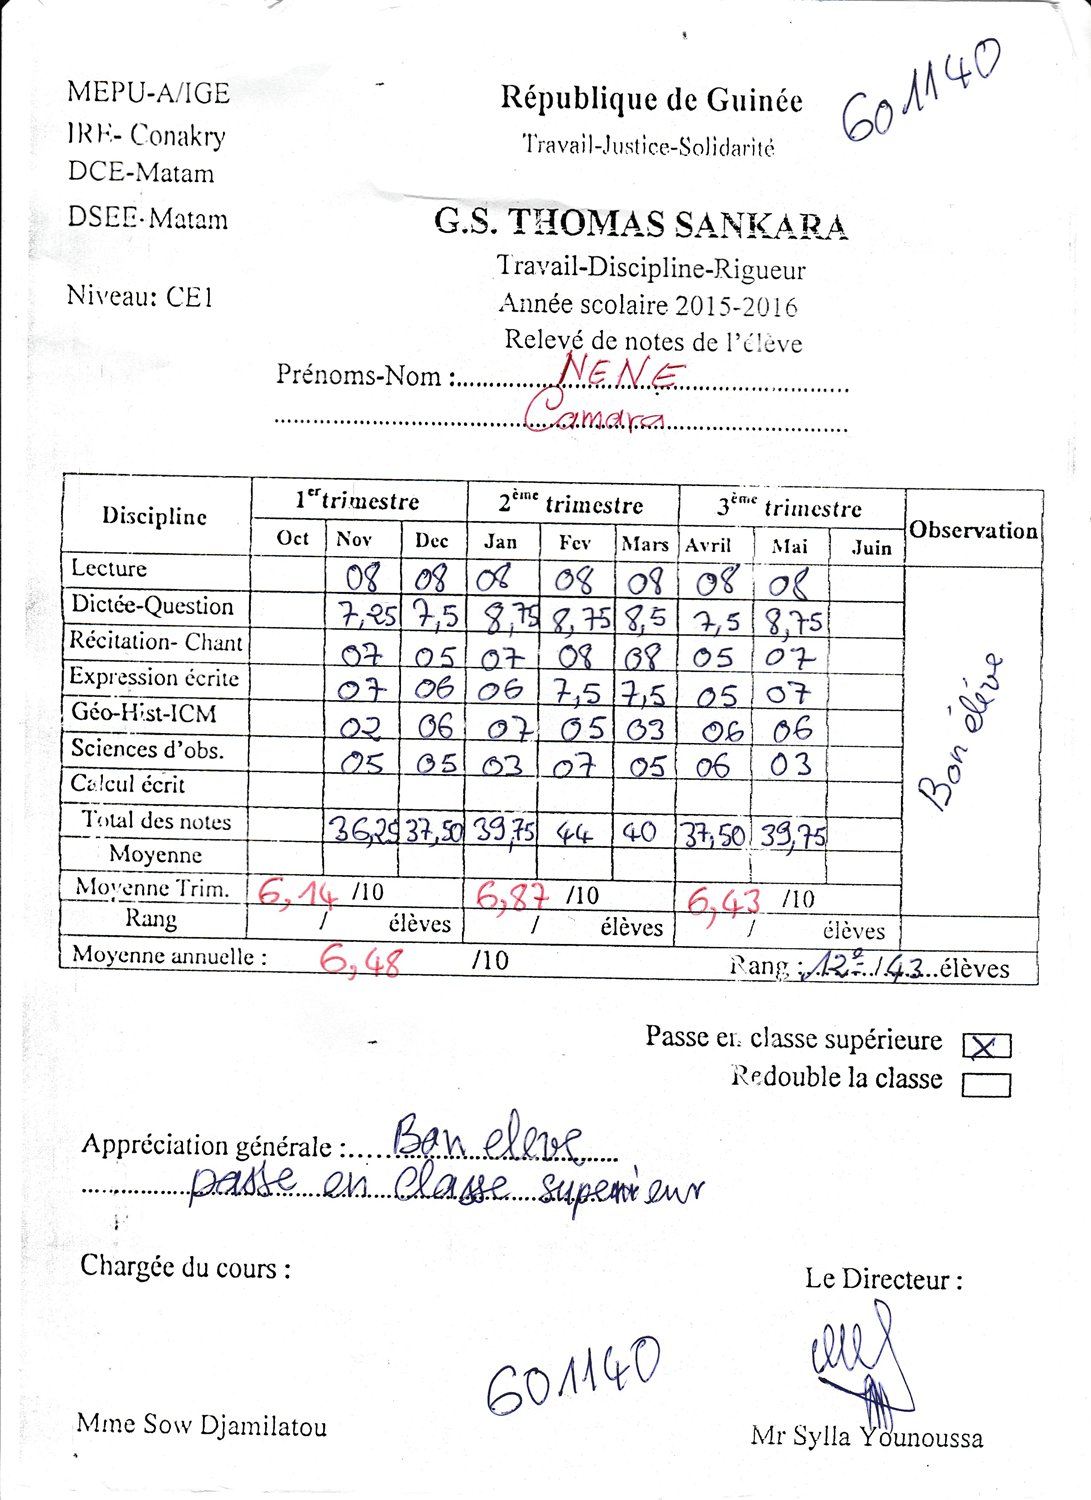 601140
MEPU-A/IGE
République de Guinée
IRE- Conakry
Travail-Justice-Solidarité
DCE-Matam
DSEE-Matam
G.S. THOMAS SANKARA
Travail-Discipline-Rigueur
Niveau: CE1
Année scolaire 2015-2016
Relevé de notes de l'élève
Prénoms-Nom :..............NENE..........................
..................................Camara..........................
Discipline 1er trimestre 2ème trimestre 3ème trimestre Observation
Oct Nov Dec Jan Fev Mars Avril Mai Juin
Lecture 08 08 08 08 08 08 08
Dictée-Question 7,25 7,5 8,75 8,75 8,5 7,5 8,75
Récitation- Chant 07 05 07 08 08 05 07
Expression écrite 07 06 06 7,5 7,5 05 07
Géo-Hist-ICM 02 06 07 05 03 06 06
Sciences d'obs. 05 05 03 07 05 06 03
Calcul écrit
Total des notes 36,25 37,50 39,75 44 40 37,50 39,75
Bon élève
Moyenne
Moyenne Trim. 6,14 /10 6,87 /10 6,43 /10
Rang / élèves / élèves / élèves
Moyenne annuelle : 6,48 /10 Rang :.12e../.43..élèves
Passe en classe supérieure X
Redouble la classe
Appréciation générale :.....Bon eleve.....
...............passe en classe superieur
Chargée du cours :
Le Directeur :
601140
Mme Sow Djamilatou
Mr Sylla Younoussa